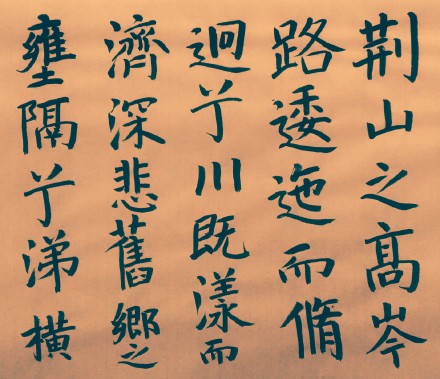 荆山之髙岑
路逶迤而脩
逈兮川既漾而
濟深悲舊鄉之
壅隔兮涕横